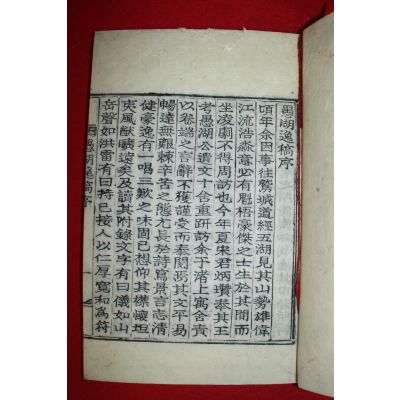 愚湖逸稿序
頃年余因事往鷲城道經五湖見其山勢雄偉
江流浩淼意必有魁梧豪傑之士生於其間而
坐凌劇不得周訪也今年夏宋君瓚奉其王
考愚湖公遺文十舍重趼訪余于渚上寓舍責
以卷端之言辭不獲謹受而奉閱焉其文平易
暢達無艱棘辛苦之態尤長於詩寫景言志清
健豪逸有一唱三歎之味固已想仰其襟懷坦
夷風猷曠遠矣及讀其附錄文字有曰儀如山
岳聲如洪雷有曰持己接人以仁厚寬和爲符
愚湖逸稿序
一